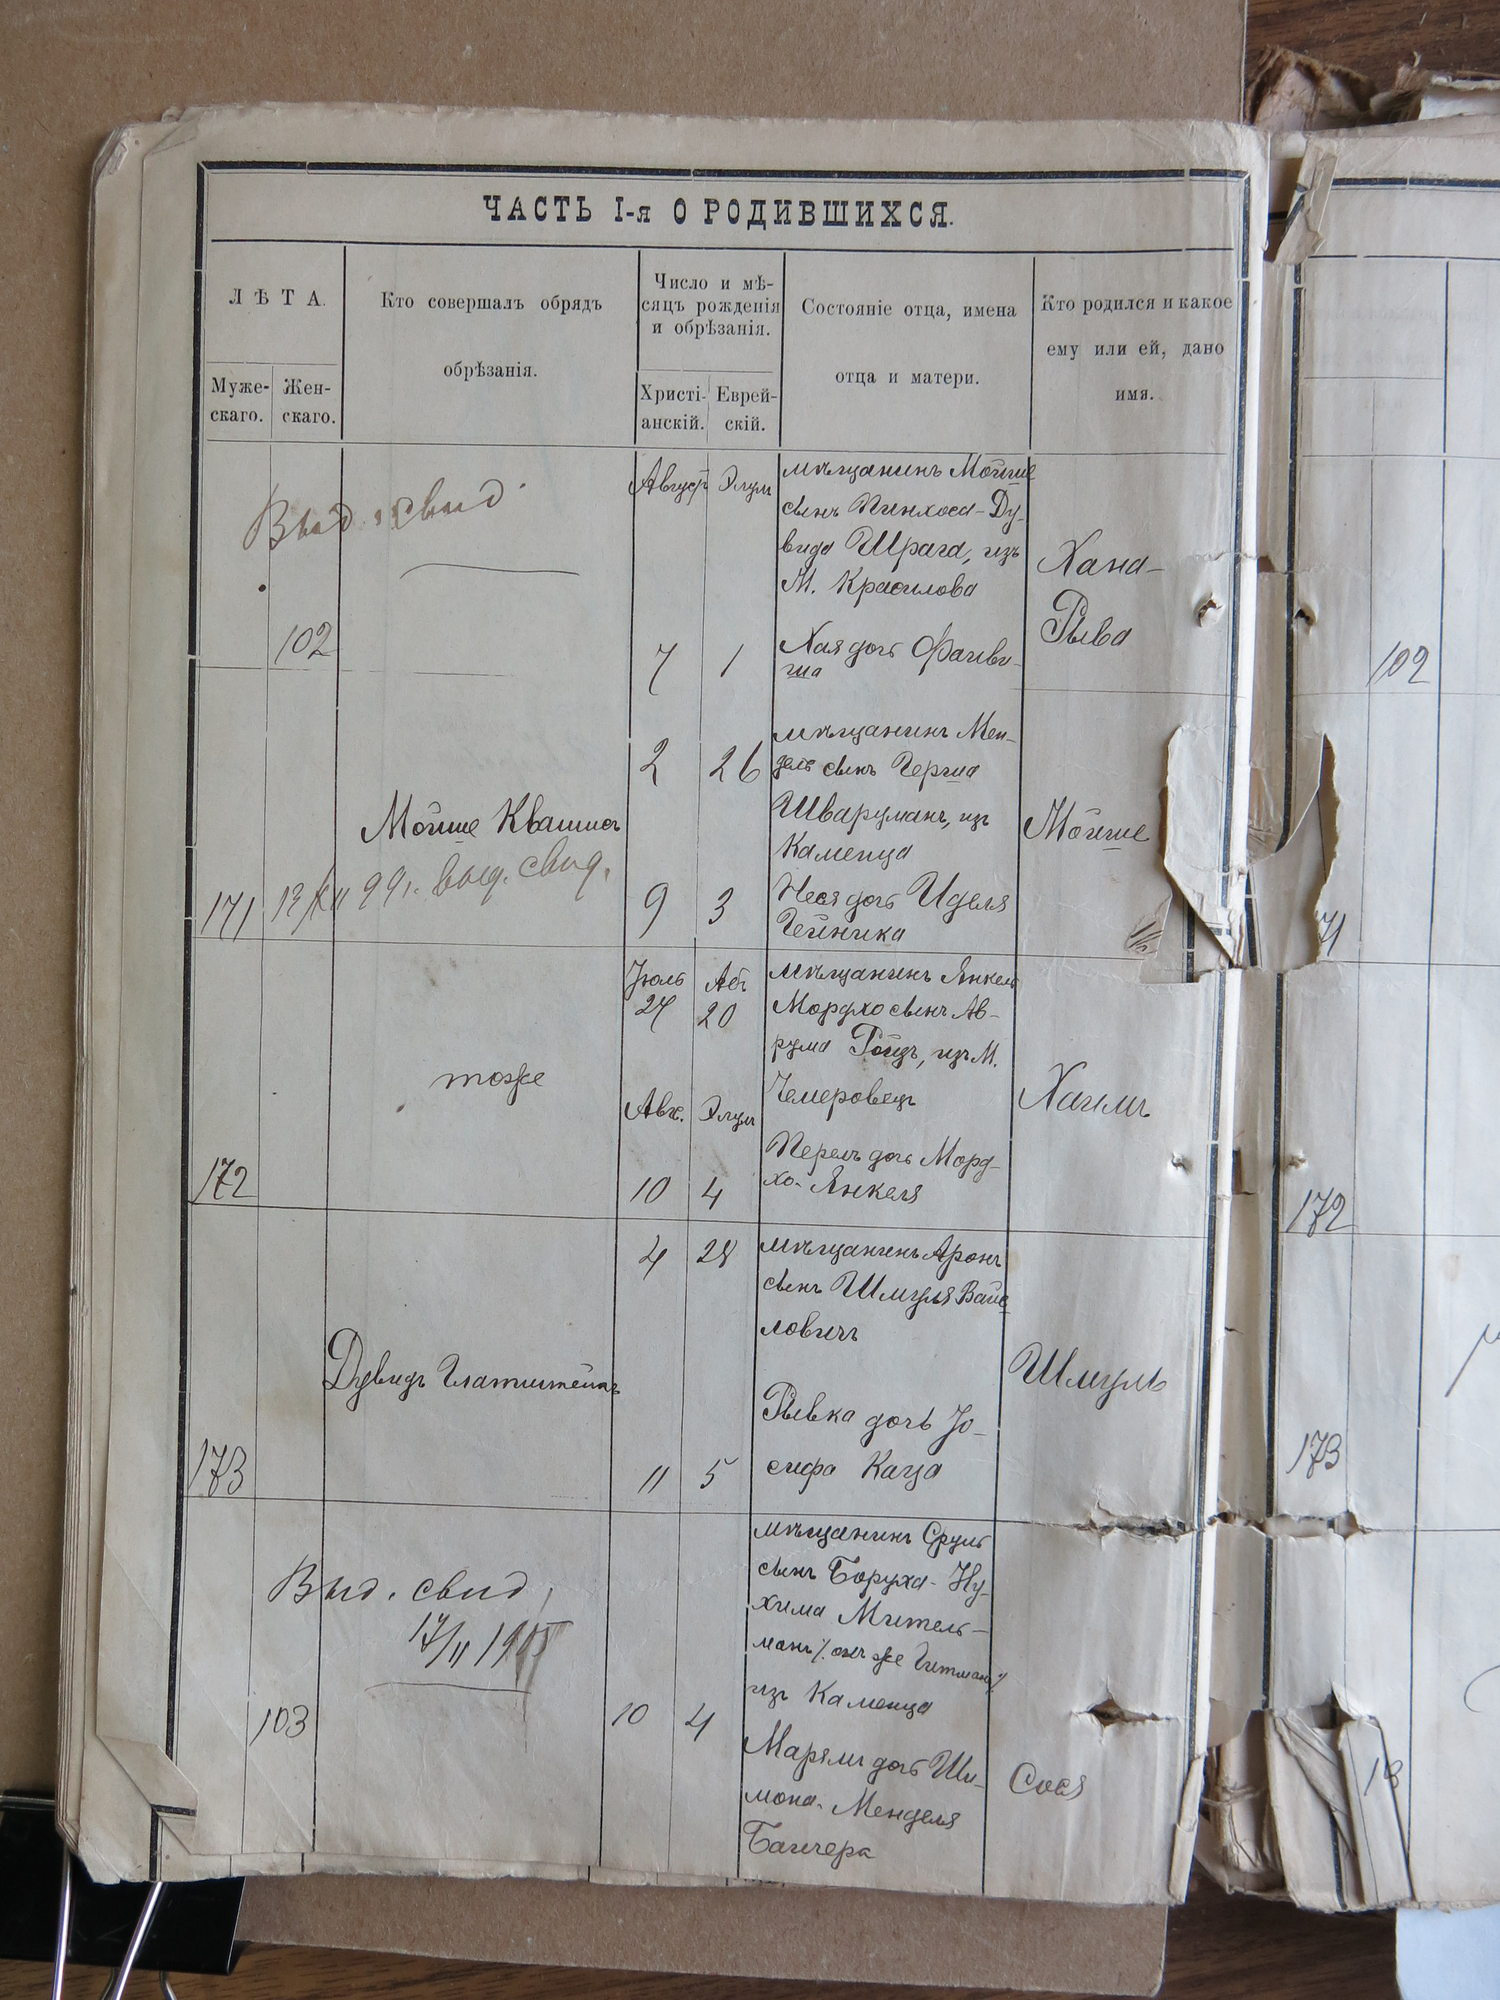 ЧАСТЬ I-я О РОДИВШИХСЯ.
ЛѢТА.
Муже-
скаго.
Жен-
скаго.
Кто совершалъ обрядъ
обрѣзанія.
Число и мѣ-
сяцъ рожденія
и обрѣзанія.
Христі-
анскій.
Еврей-
скій.
Состояніе отца, имена
отца и матери.
Кто родился и какое
ему или ей, дано
имя.
Выд. свид.
102
Август
7
Элул
1
мѣщанинъ Мойше
сынъ Пинхоса-Ду-
вида Шрага, изъ
М. Красилова
Хая дочь Файви-
ша
Хана-
Рыва
171
Мойше Квашисъ
99 г. выд. свид.
2
26
9
3
мѣщанинъ Мен-
дель сынъ Герша
Шварцманъ, изъ
Каменца
Неся дочь Иделя
Гейника
Мойше
172
тоже
Іюль
24
Аб
20
Авг.
Элул
10
4
мѣщанинъ Янкель
Мордхо сынъ Ав-
рума Ройзъ, изъ М.
Чемеровецъ
Перель дочь Морд-
хо-Янкеля
Хаимъ
173
Дувидъ Глатштейнъ
4
28
11
5
мѣщанинъ Аронъ
сынъ Шмуля Вайс
ловичъ
Рывка дочь Іо-
сифа Каца
Шмуль
103
Выд. свид.
17/II 1905
10
4
мѣщанинъ Сруль
сынъ Боруха-Ну-
хима Митель-
манъ /:онъ же Гитманъ:/
изъ Каменца
Марямъ дочь Ши-
мона-Менделя
Сося
102
71
172
173